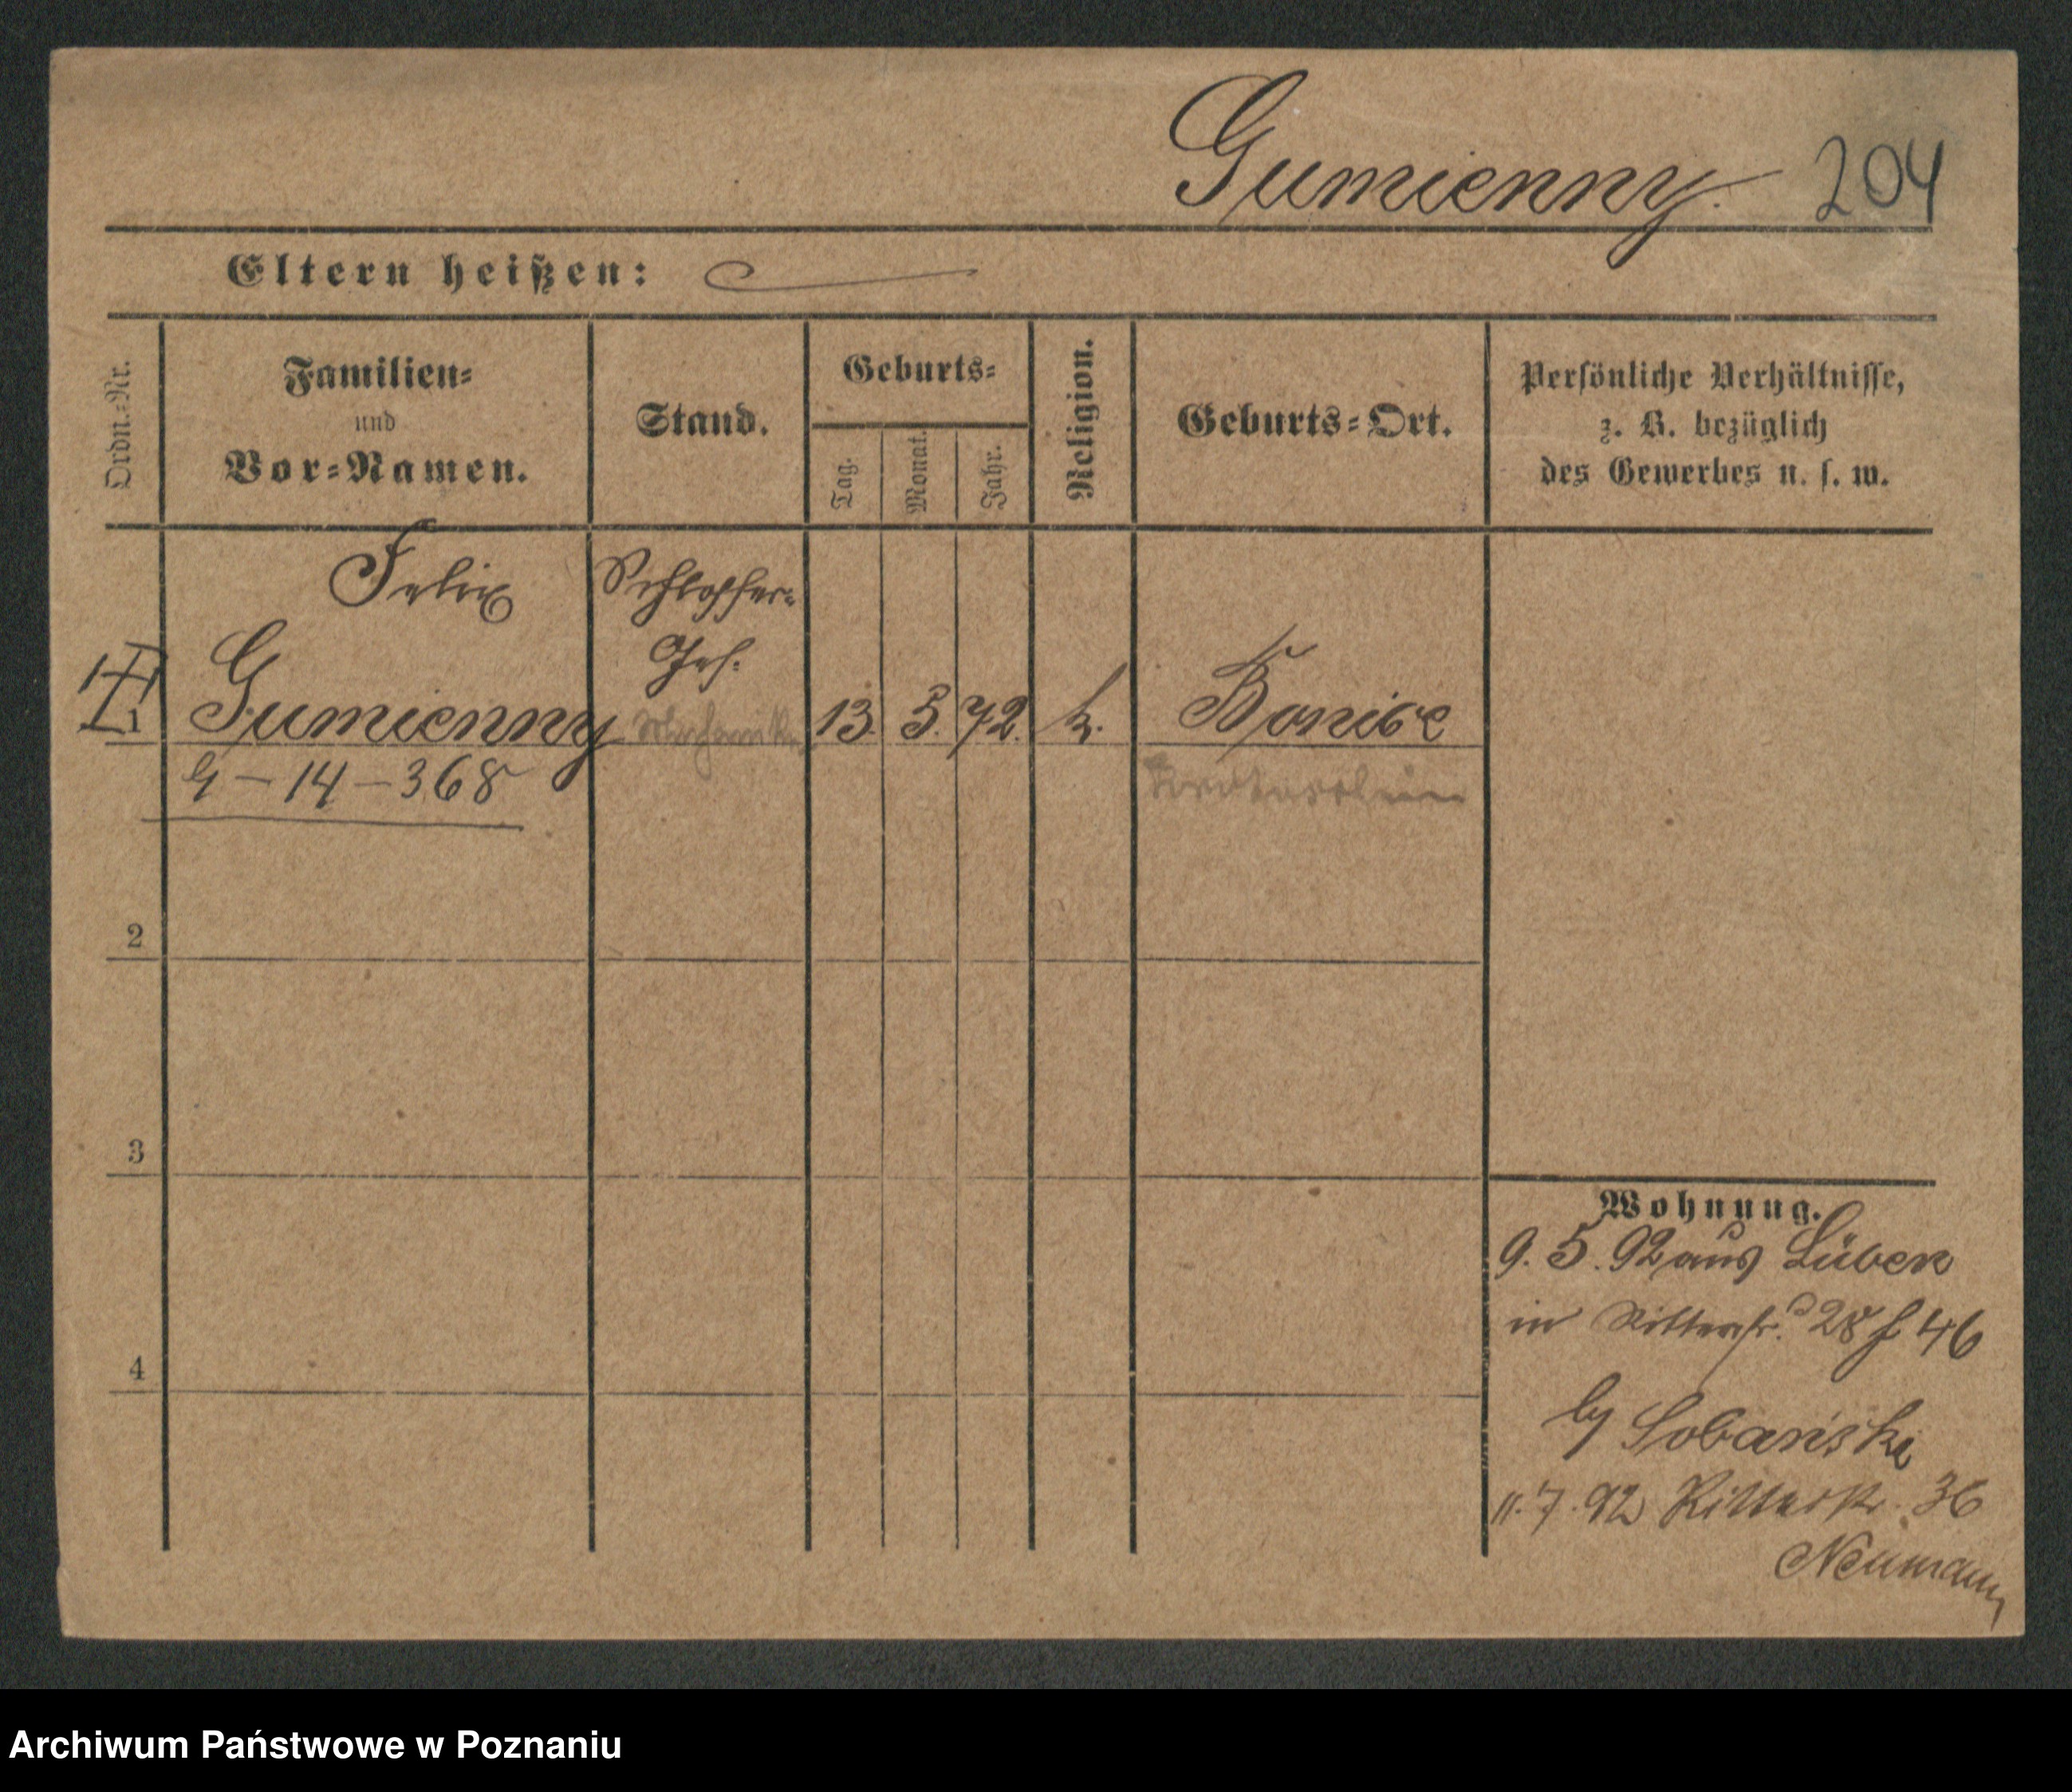 Gumienny. 204
Eltern heißen:
Ordn.-Nr.
Familien-
und
Vor-Namen.
Stand.
Geburts-
Tag.
Monat.
Jahr.
Religion.
Geburts-Ort.
Persönliche Verhältnisse,
z. B. bezüglich
des Gewerbes u. s. w.
Felix
Schlosser-
Ges.
1 Gumienny 13. 5. 72. k.
G-14-368
2
3
4
Wohnung.
9. 5. 92 aus Lübek
in Ritterstr. 28 f 46
by Sobański
11. 7. 92 Ritterstr. 36
Neumann
Archiwum Państwowe w Poznaniu